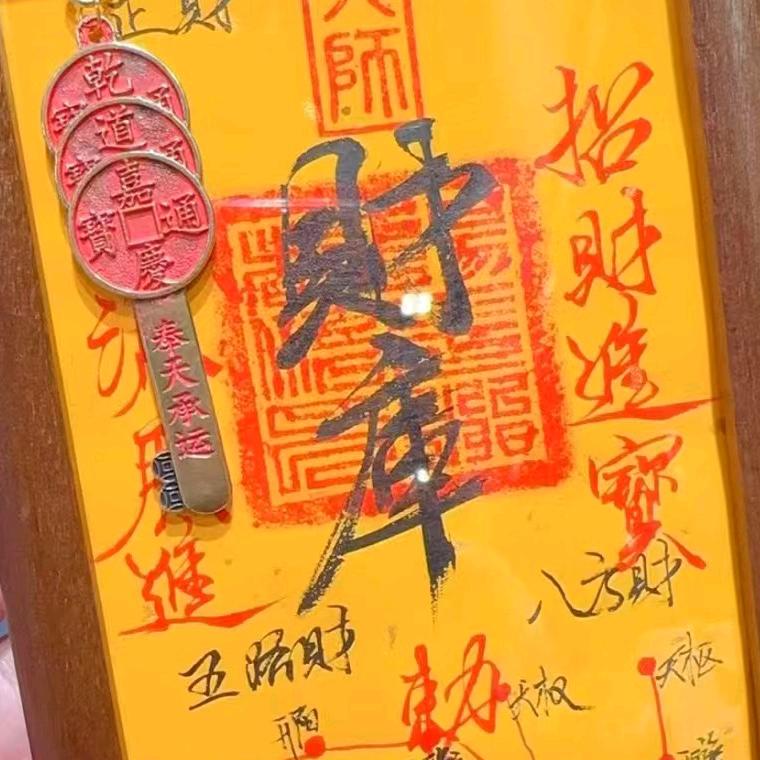 正財
師
乾
道
嘉慶通寶
奉天承运
財庫
招財進寶
進
五路財
八方財
勅
天权
天枢